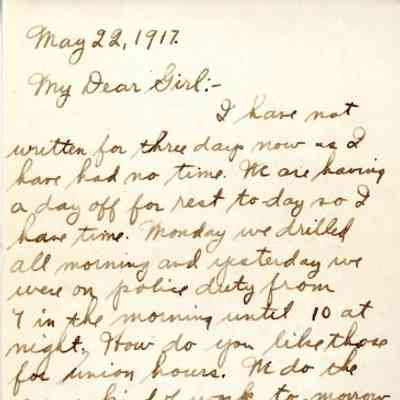 May 22, 1917.
My Dear Girl:-
I have not
written for three days now as I
have had no time. We are having
a day off for rest to-day so I
have time. Monday we drilled
all morning and yesterday we
were on police duty from
7 in the morning until 10 at
night. How do you like those
for union hours. We do the
kind of work to-morrow